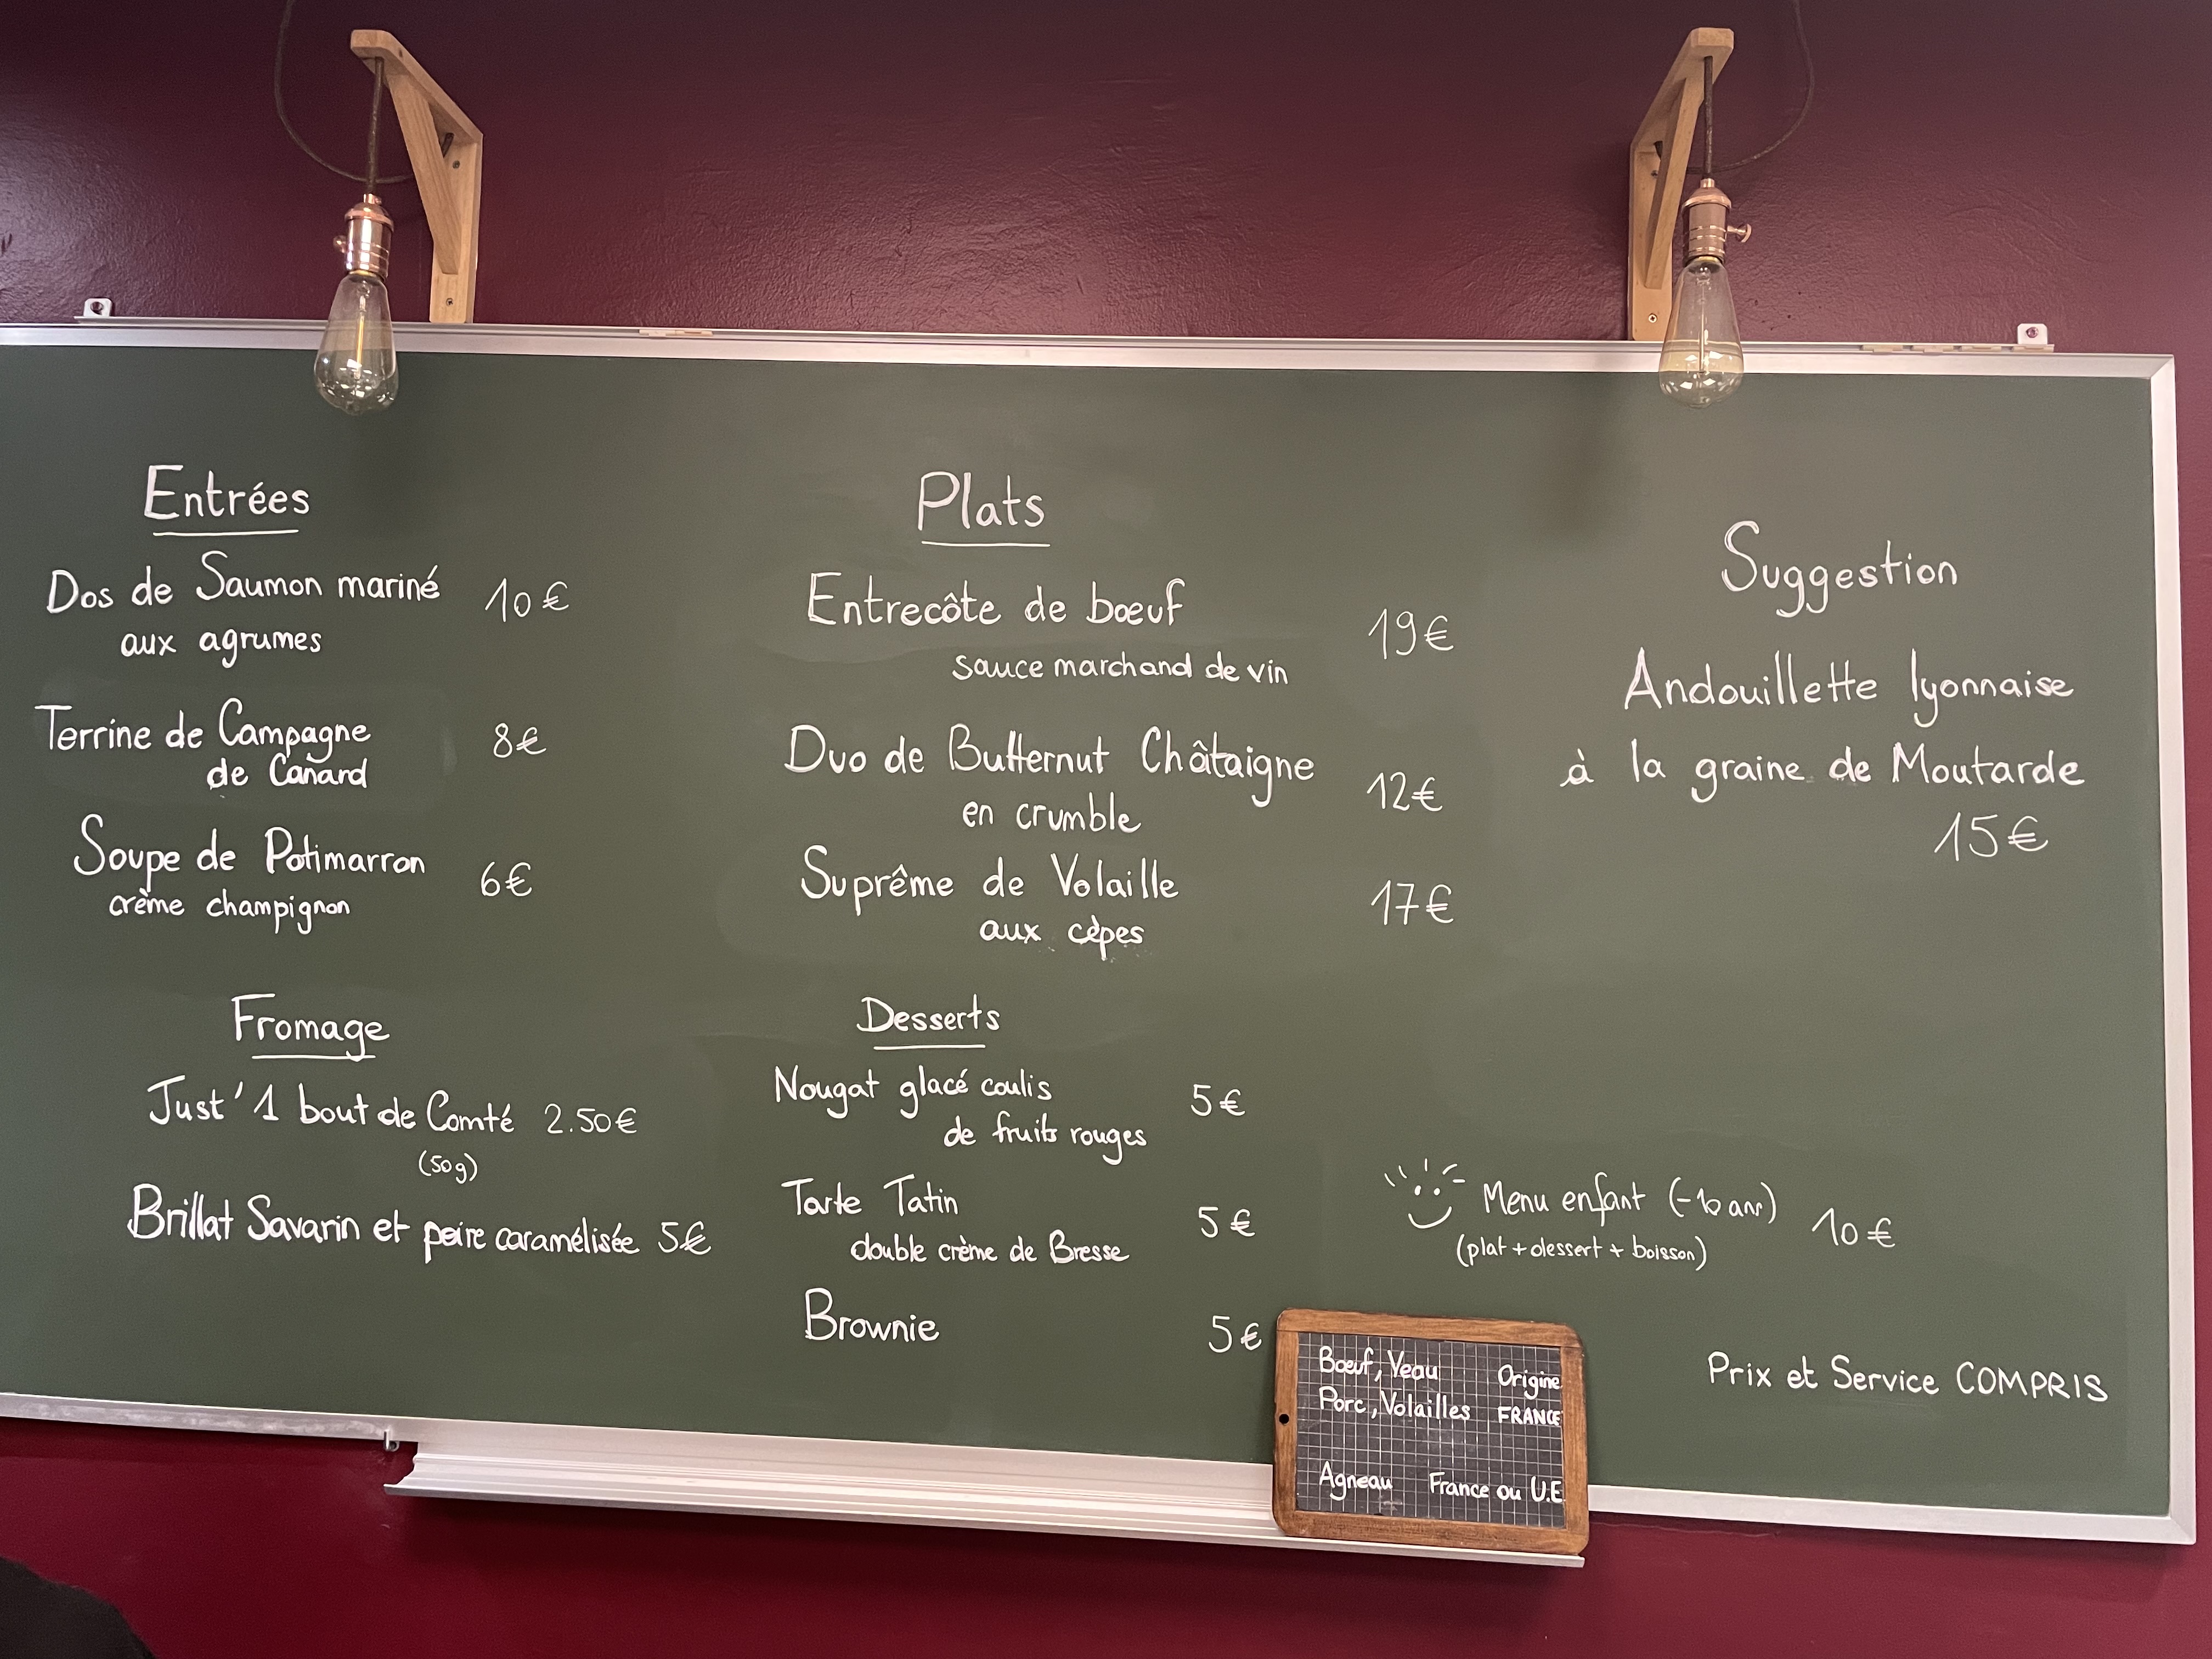 Entrées
Dos de Saumon mariné 10€
aux agrumes
Terrine de Campagne 8€
de Canard
Soupe de Potimarron 6€
crème champignon
Fromage
Just' 1 bout de Comté 2.50€
(50g)
Brillat Savarin et poire caramélisée 5€
Plats
Entrecôte de bœuf 19€
sauce marchand de vin
Duo de Butternut Châtaigne 12€
en crumble
Suprême de Volaille 17€
aux cèpes
Desserts
Nougat glacé coulis 5€
de fruits rouges
Tarte Tatin 5€
double crème de Bresse
Brownie 5€
Suggestion
Andouillette lyonnaise
à la graine de Moutarde
15€
Menu enfant (-10 ans) 10€
(plat + dessert + boisson)
Prix et Service COMPRIS
Bœuf, Veau Origine
Porc, Volailles FRANCE
Agneau France ou U.E